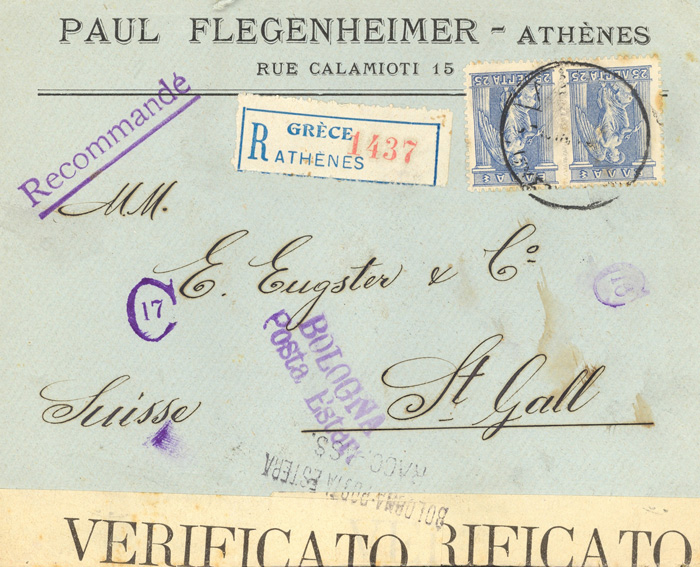 PAUL FLEGENHEIMER - ATHÈNES
RUE CALAMIOTI 15
Recommandé
R GRÈCE 1437
ATHÈNES
25 ΛΕΠΤΑ 25
ΕΛΛΑΣ
25 ΛΕΠΤΑ 25
ΕΛΛΑΣ
MM.
E. Eugster & Cº
17
St Gall
Suisse
BOLOGNA
Posta Estera
RACC
BOLOGNA-POSTA ESTERA
VERIFICATO
RIFICATO